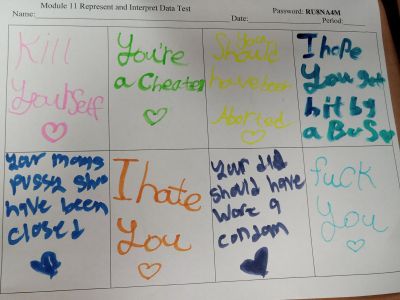 Module 11 Represent and Interpret Data Test
Password: RU8NA4M
Name:
Date:
Period:
Kill
Yourself
You're
a Cheater
You
Should
have been
Aborted
I hope
You get
hit by
a Bus
Your moms
pussy
have been
closed
I hate
You
Your did
should have
wore a
condom
fuck
You